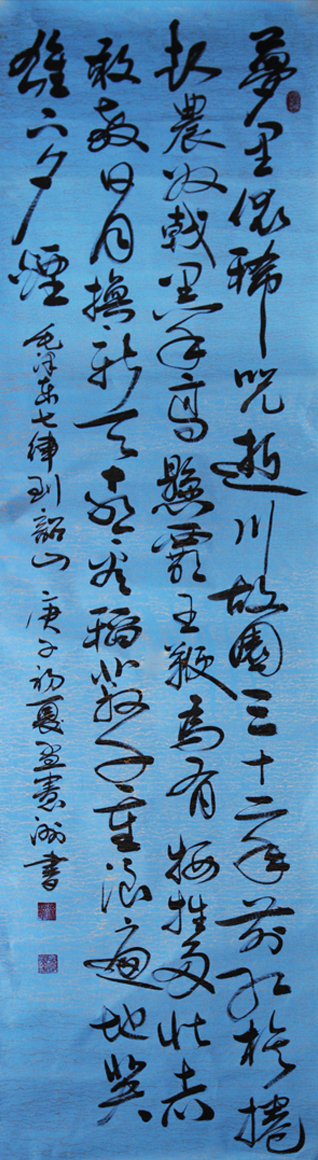 夢里依稀咒逝川故園三十二年前紅旗捲
起農奴戟黑手高懸霸主鞭為有牺牲多壯志
敢教日月換新天喜看稻菽千重浪遍地英
雄下夕煙
毛澤東七律到韶山 庚子初夏孟憲洲書